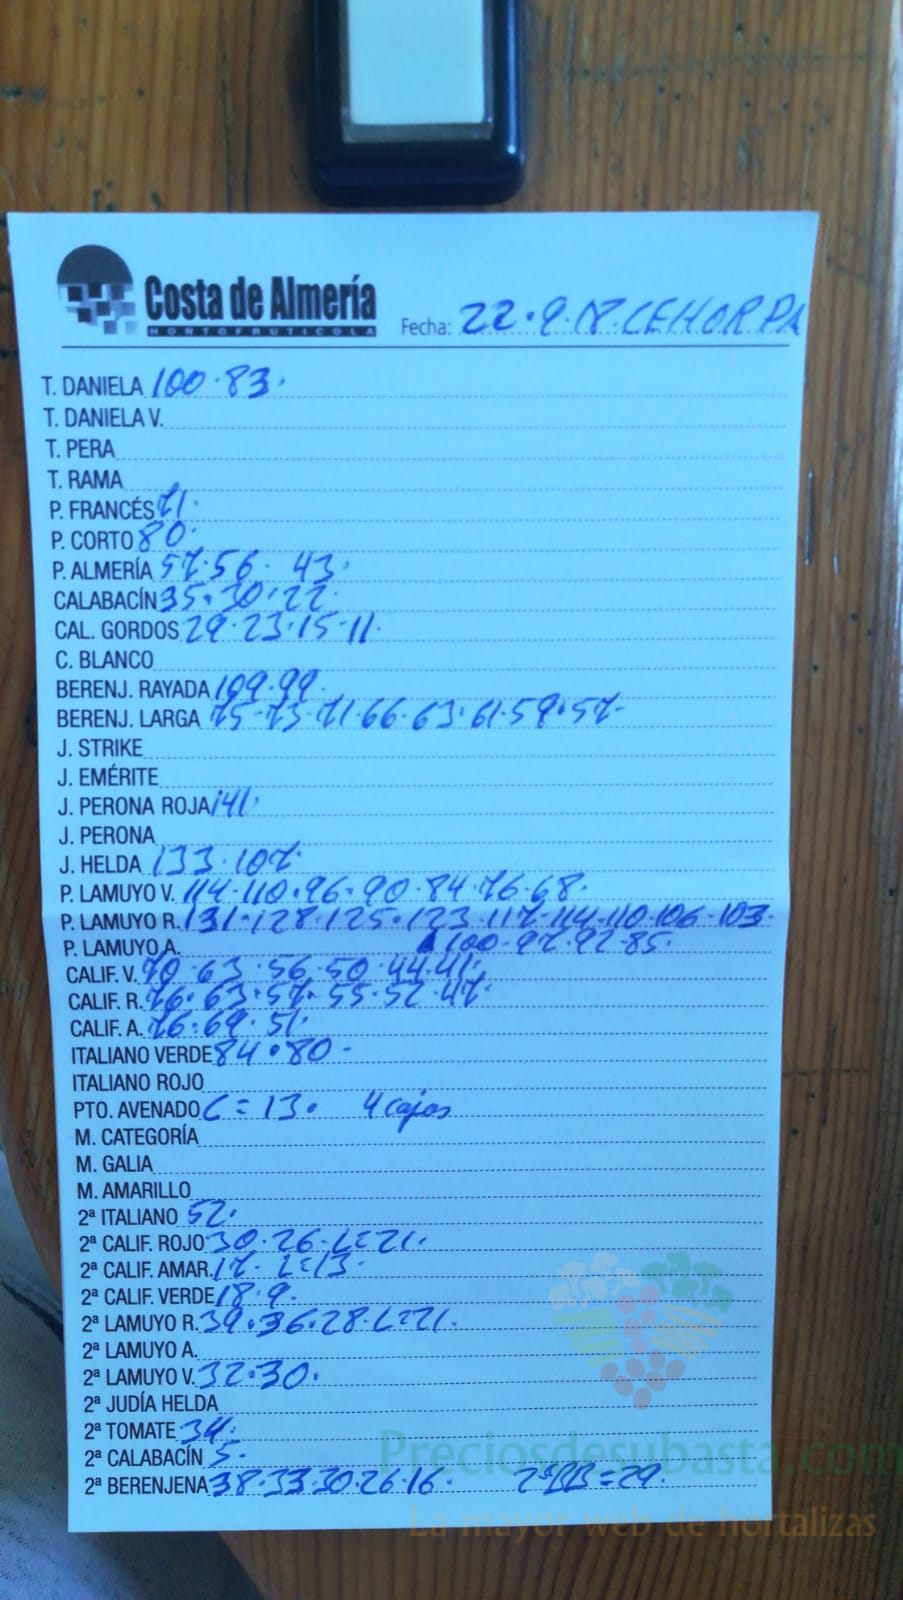 Costa de Almería
HORTOFRUTICOLA
Fecha: 22.9.18. CEHORPA
T. DANIELA 100.83.
T. DANIELA V.
T. PERA
T. RAMA
P. FRANCÉS 71.
P. CORTO 80.
P. ALMERÍA 57.56. 43.
CALABACÍN 35.30.22.
CAL. GORDOS 29.23.15.11.
C. BLANCO
BERENJ. RAYADA 109.99.
BERENJ. LARGA 75.73.71.66.63.61.59.57.
J. STRIKE
J. EMÉRITE
J. PERONA ROJA 141.
J. PERONA
J. HELDA 133.107.
P. LAMUYO V. 114.110.96.90.84.76.68.
P. LAMUYO R. 131.128.125.123.117.114.110.106.103.
P. LAMUYO A. 100.97.92.85.
CALIF. V. 70.63.56.50.44.41.
CALIF. R. 76.63.57.55.52.47.
CALIF. A. 76.69.51.
ITALIANO VERDE 84.80.
ITALIANO ROJO
PTO. AVENADO C=13. 4 cajas
M. CATEGORÍA
M. GALIA
M. AMARILLO
2ª ITALIANO 52.
2ª CALIF. ROJO 30.26.L=21.
2ª CALIF. AMAR. 17. L=13.
2ª CALIF. VERDE 18.9.
2ª LAMUYO R. 39.36.28.L=21.
2ª LAMUYO A.
2ª LAMUYO V. 32.30.
2ª JUDÍA HELDA
2ª TOMATE 34.
2ª CALABACÍN 5.
2ª BERENJENA 38.33.30.26.16. 2ªBB=29.
Preciosdesubasta.com
La mayor web de hortalizas